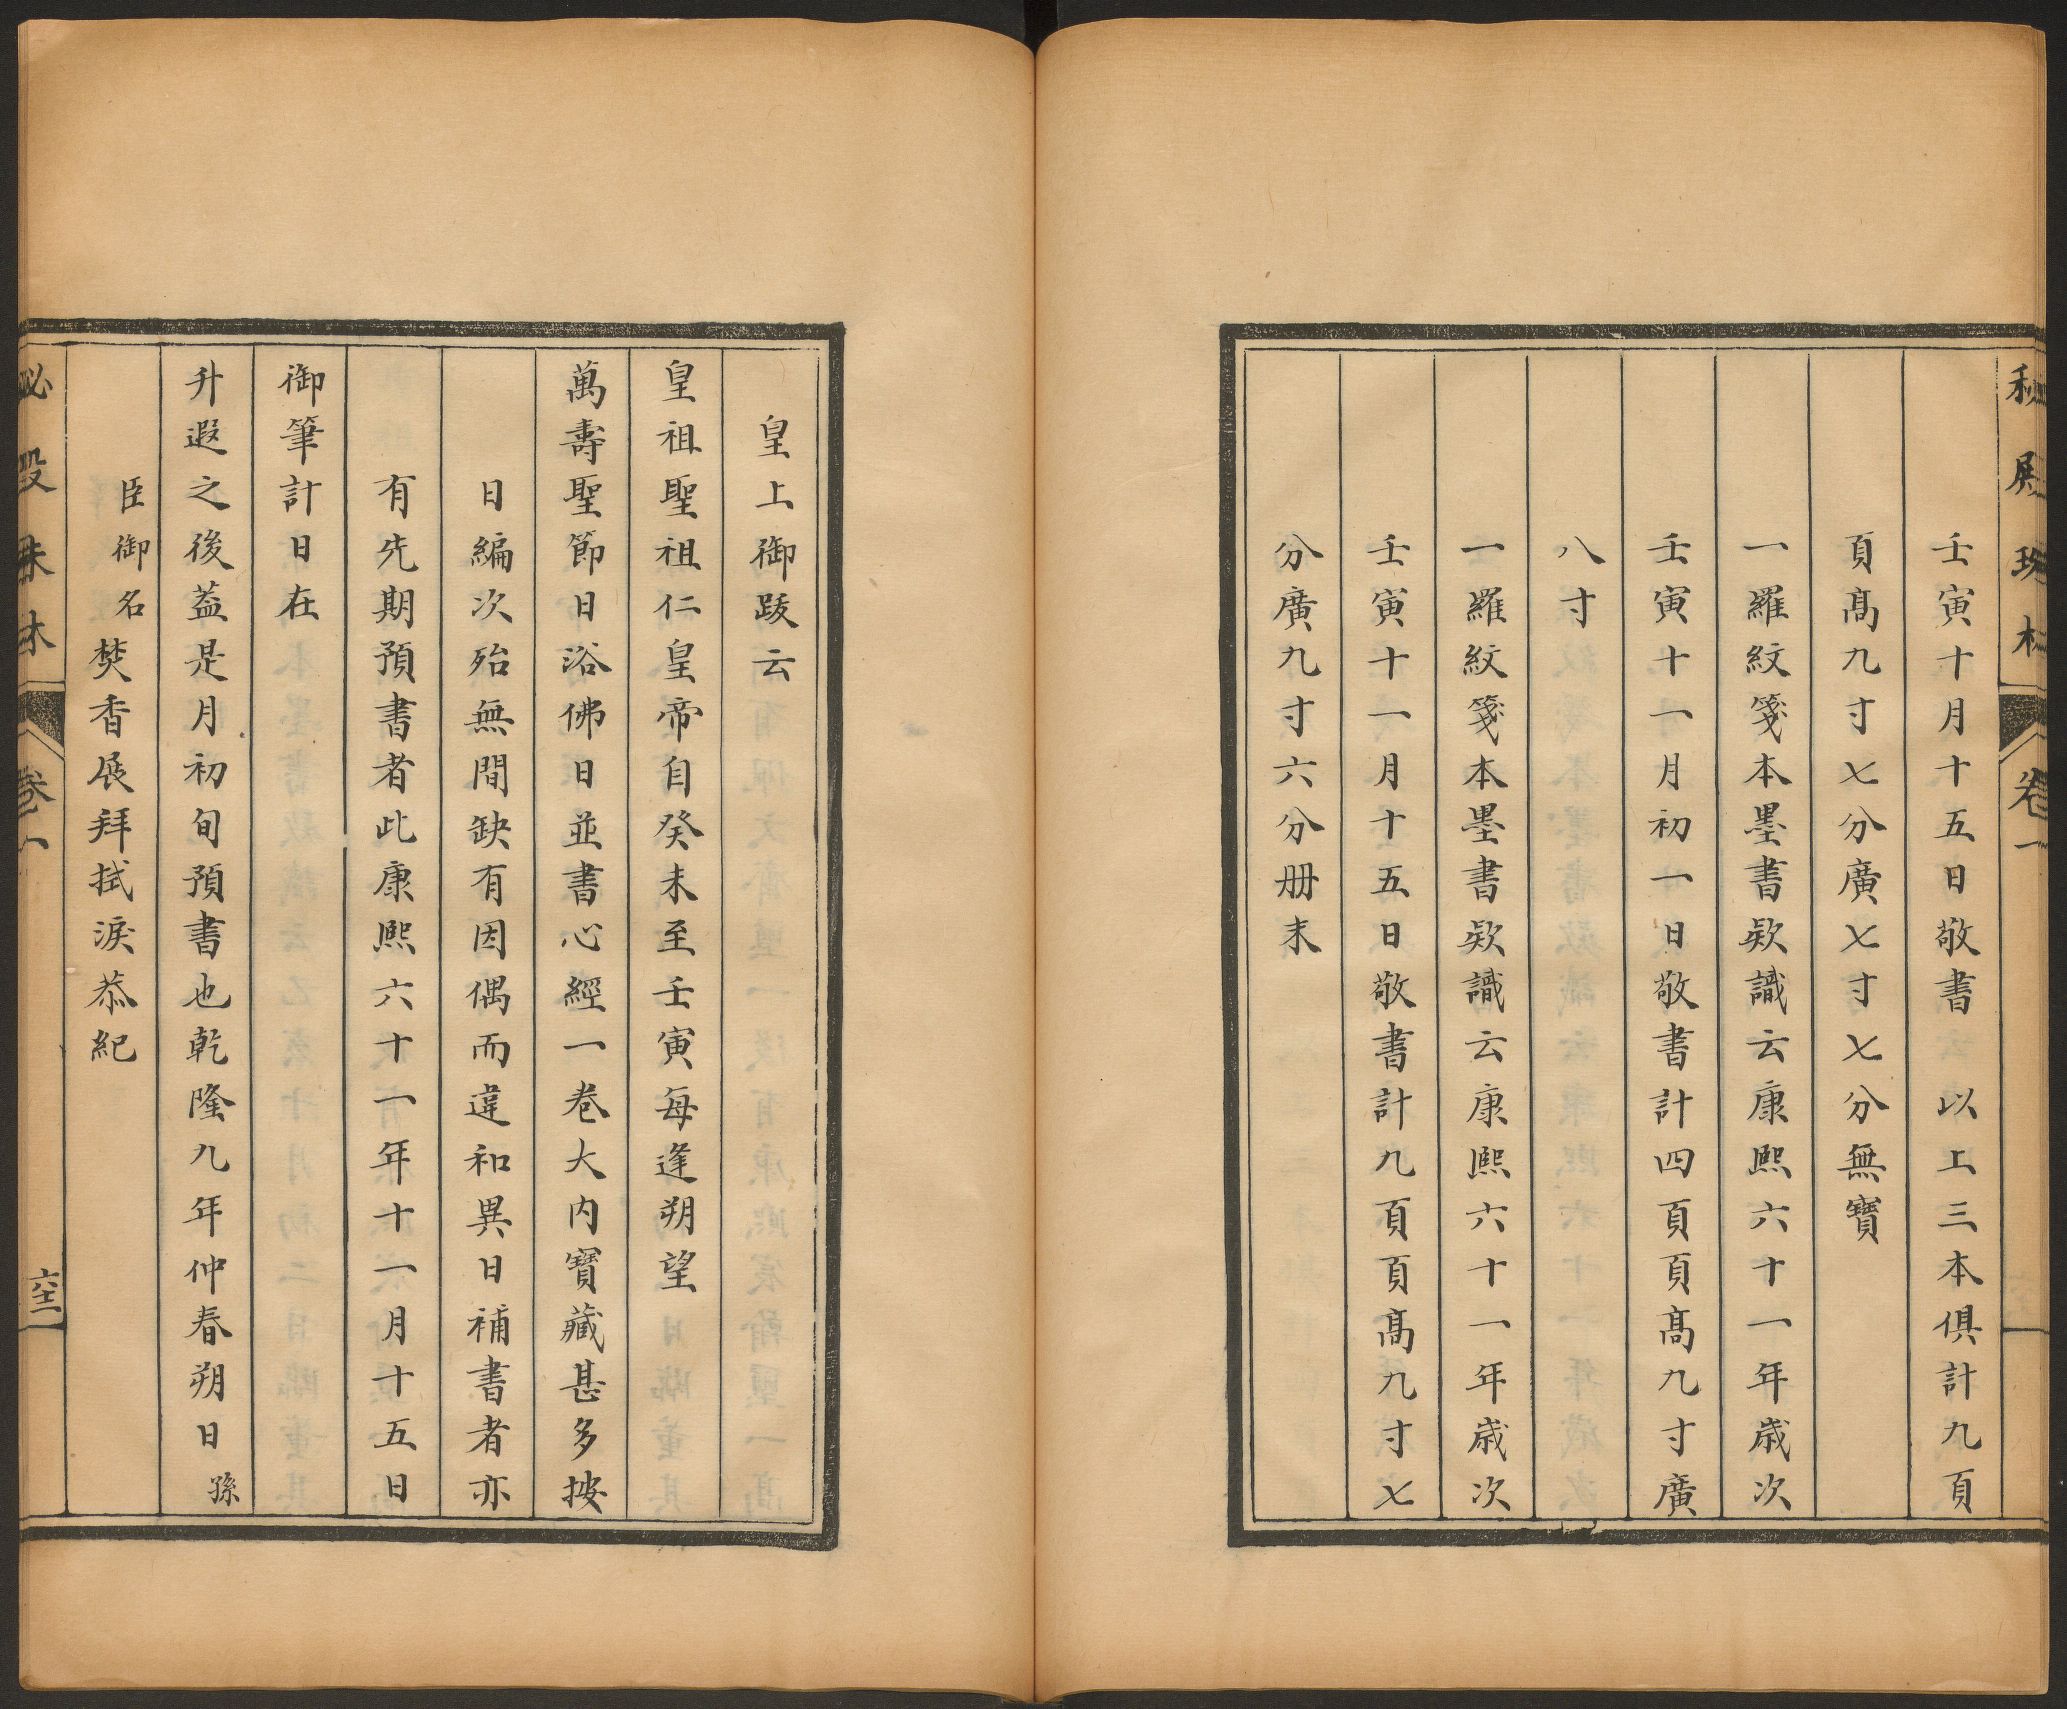 秘殿珠林 卷一
壬寅十月十五日敬書 以上三本俱計九頁
頁髙九寸七分廣七寸七分無寶
一羅紋箋本墨書欵識云康熙六十一年歲次
壬寅十一月初一日敬書計四頁頁髙九寸廣
八寸
一羅紋箋本墨書欵識云康熙六十一年歲次
壬寅十一月十五日敬書計九頁頁髙九寸七
分廣九寸六分册末
皇上御跋云
皇祖聖祖仁皇帝自癸未至壬寅每逢朔望
萬壽聖節日浴佛日並書心經一卷大内寶藏甚多按
日編次殆無間缺有因偶而違和異日補書者亦
有先期預書者此康熙六十一年十一月十五日
御筆計日在
升遐之後葢是月初旬預書也乾隆九年仲春朔日孫
臣御名焚香展拜拭淚恭紀
秘殿珠林 卷一 六十二